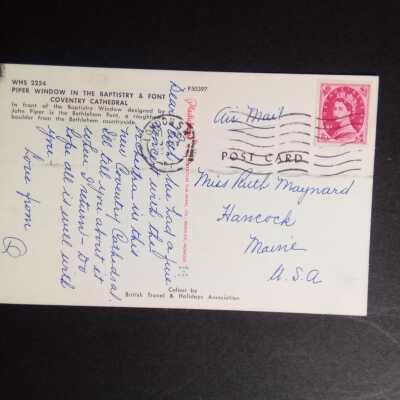 WHS 2254
PIPER WINDOW IN THE BAPTISTRY & FONT
COVENTRY CATHEDRAL
In front of the Baptistry Window designed by
John Piper is the Bethlehem Font, a roughhewn
boulder from the Bethlehem countryside.
P50397
Dear
had a fine
concert with the
orchestra in this
new Coventry Cathedral.
I'll tell you about it
when I return - Do
hope all is well with
you
Love from
Colour by
British Travel & Holidays Association
Air Mail
POST CARD
Miss Ruth Maynard
Hancock
Maine
U.S.A